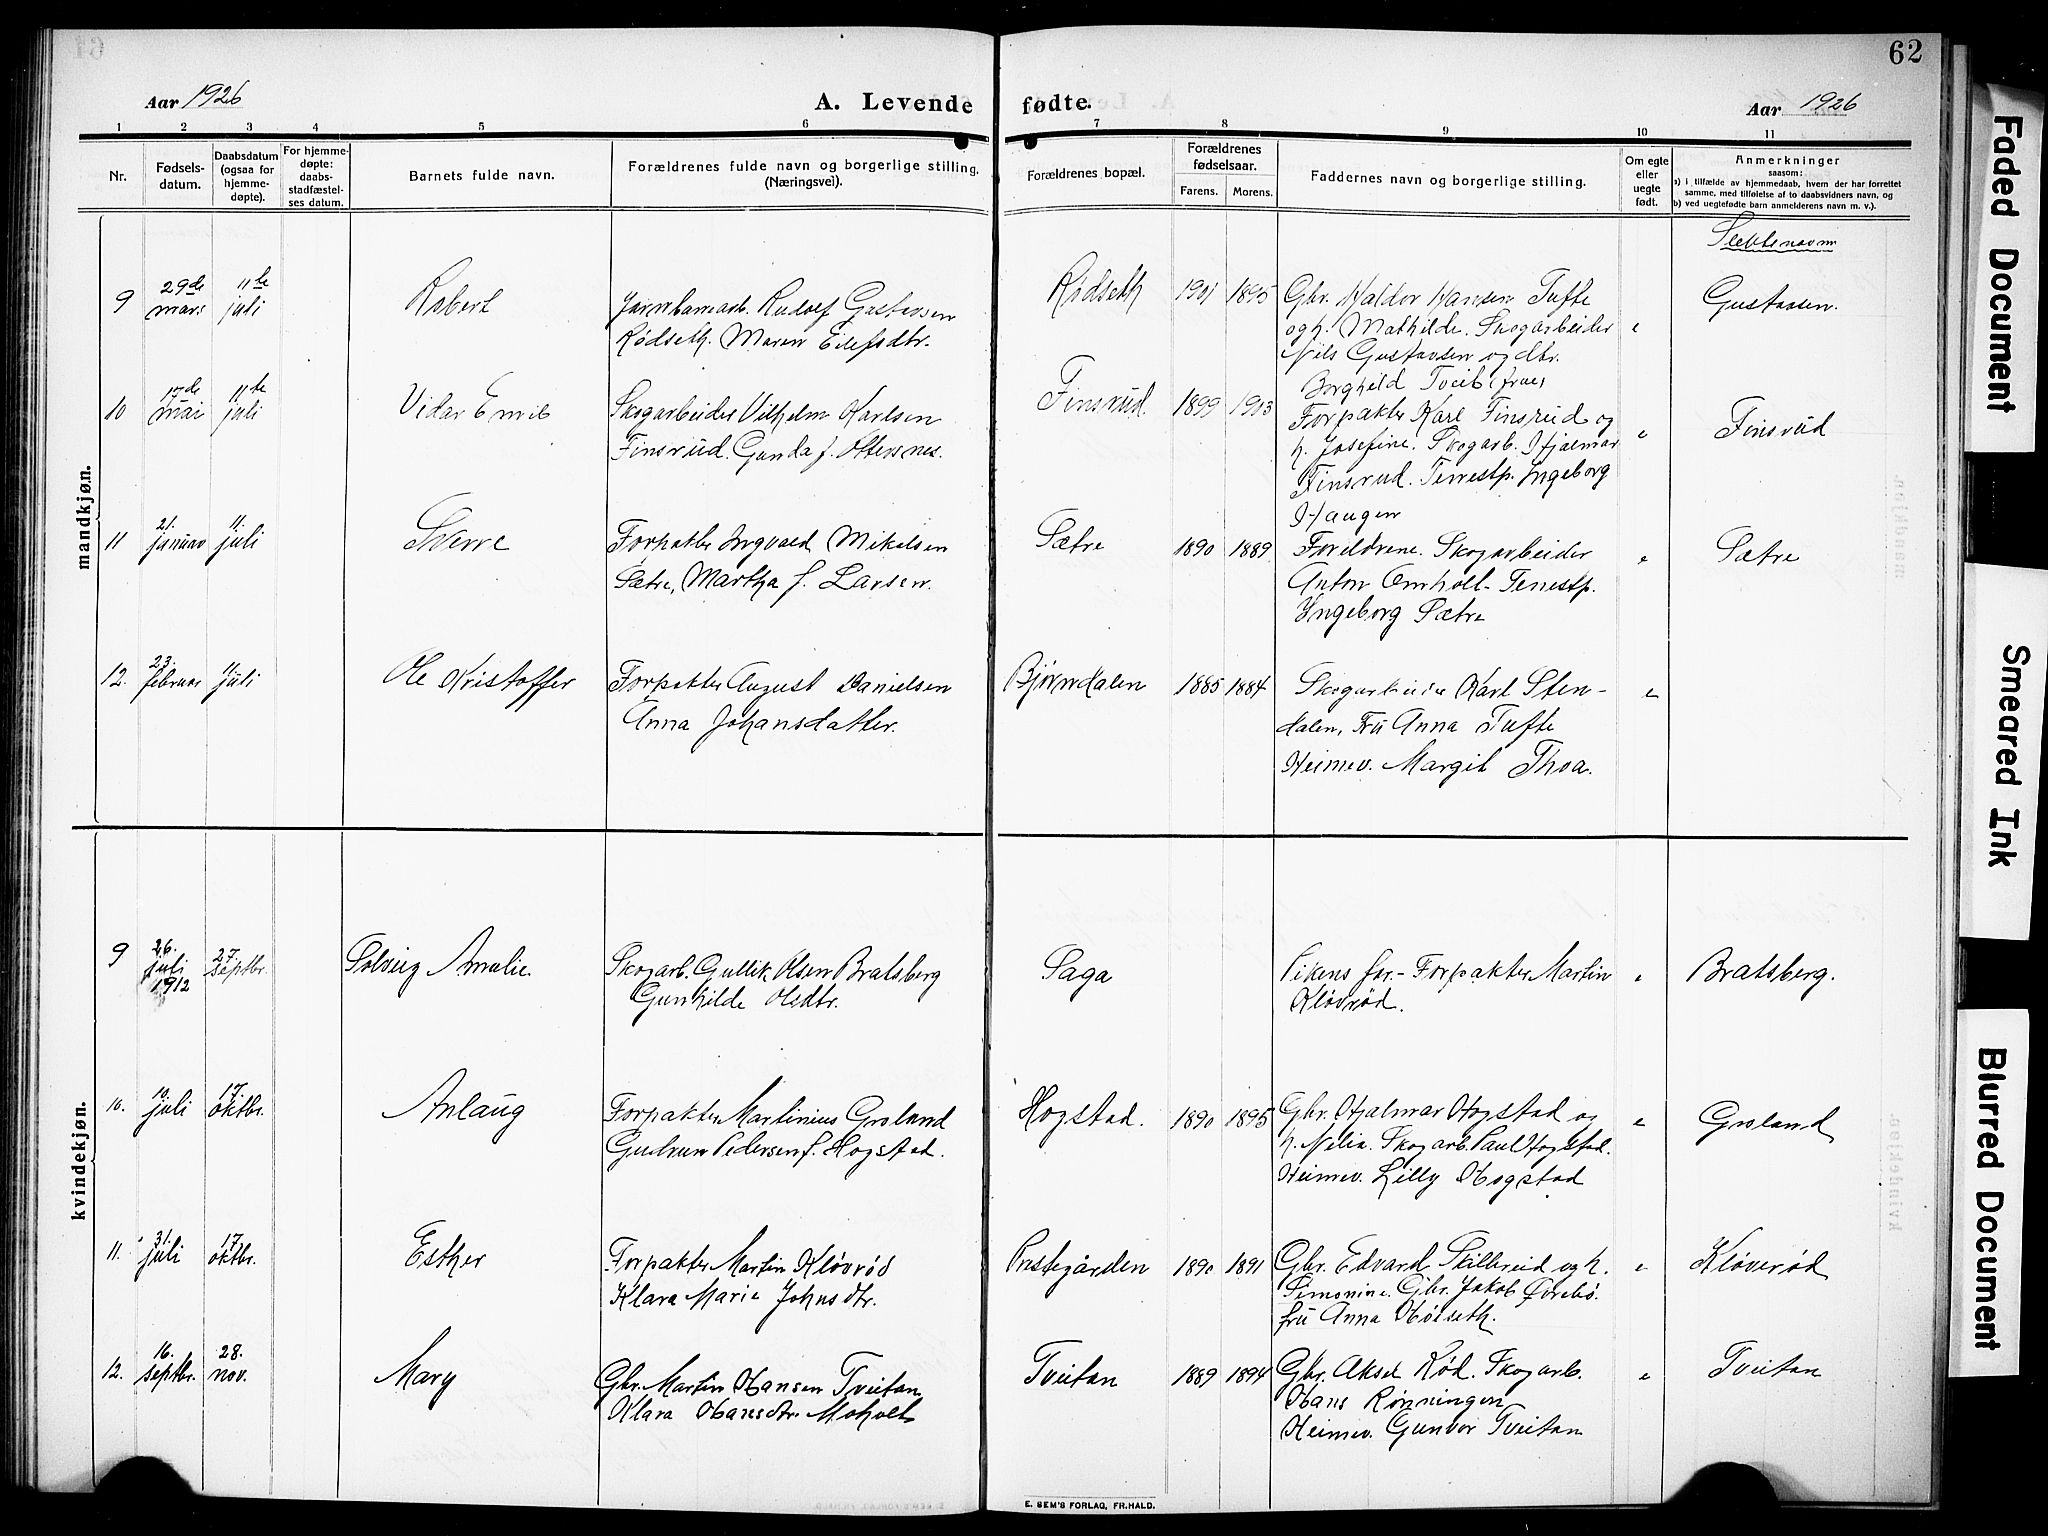 62
Aar 1926
A. Levende fødte.
Aar 1926
1 2 3 4 5 6 7 8 9 10 11
Nr.
Fødsels-
datum.
Daabsdatum
(ogsaa for
hjemme-
døpte).
For hjemme-
døpte:
daabs-
stadfæstel-
ses datum.
Barnets fulde navn.
Forældrenes fulde navn og borgerlige stilling.
(Næringsvei).
Forældrenes bopæl.
Forældrenes
fødselsaar.
Farens. Morens.
Faddernes navn og borgerlige stilling.
Om egte
eller
uegte
født.
Anmerkninger
saasom:
a) i tilfælde av hjemmedaab, hvem der har forrettet
samme, med tilføielse af to daabsvidners navn, og
b) ved uegtefødte barn anmelderens navn m. v.).
Slektsnavn
mandkjøn.
9
29de
mars
11te
juli
Robert
Jernbanearb. Rudolf Gustavsen
Rödseth. Maren Eilefsdtr.
Rödseth
1901 1895
Gbr. Haldor Hansen Tufte
og h. Mathilde. Skogarbeider
Nils Gustavsen og dtr.
Borghild Tveit (frue)
e
Gustavsen.
10
17de
mai
11te
juli
Vidar Emil
Skogarbeider Vilhelm Karlsen
Finsrud. Gunda f. Ottersnes.
Finsrud.
1899 1903
Forpakter Karl Finsrud og
h. Josefine. Skogarb. Hjalmar
Finsrud. Tenestp. Ingeborg
Haugen
e
Finsrud
11
21.
januar
11.
juli
Sverre
Forpakter Ingvald Mikalsen
Sætre, Martha f. Larsen.
Sætre
1890 1889
Foreldrene. Skogarbeider
Anton Omholt. Tenestp.
Ingeborg Sætre
e
Sætre
12.
23.
februar
11.
juli
Ole Kristoffer
Forpakter August Danielsen
Anna Johansdatter.
Bjørndalen
1885 1884
Skogarbeider Karl Sten-
dalen, Fru Anna Tufte
Heimev. Margit Thoa.
e
kvindekjøn.
9
26.
juli
1912
27.
septbr.
Solveig Amalie.
Skogarb. Gullik Olsen Bratsberg
Gunhilde Olsdtr.
Saga
Pikens far - Forpakter Martin
Kløvrød.
e
Bratsberg.
10.
10.
juli
17.
oktbr.
Anlaug
Forpakter Martinius Grøland
Gudrun Pedersen f. Hogstad.
Hogstad.
1890 1895
Gbr. Hjalmar Hogstad og
h. Nelia. Skogarb. Paul Hogstad.
Heimev. Lilly Hogstad
e
Grøland
11.
31.
juli
17.
oktbr.
Esther
Forpakter Martin Kløvrød
Klara Marie Johnsdtr.
Prestegården
1890 1891
Gbr. Edvard Skilbreid og h.
Simonine. Gbr. Jakob Ørebö.
fru Anna Hölseth.
e
Kløverød
12.
16.
septbr.
28.
nov.
Mary
Gbr. Martin Hansen Tveitan
Klara Hansdtr. Moholt
Tveitan
1889 1894
Gbr. Aksel Rød. Skogarb.
Hans Rønningen
Heimev. Gunvor Tveitan
e
Tveitan
E. SEM'S FORLAG, FR.HALD.
Faded Document
Smeared Ink
Blurred Document